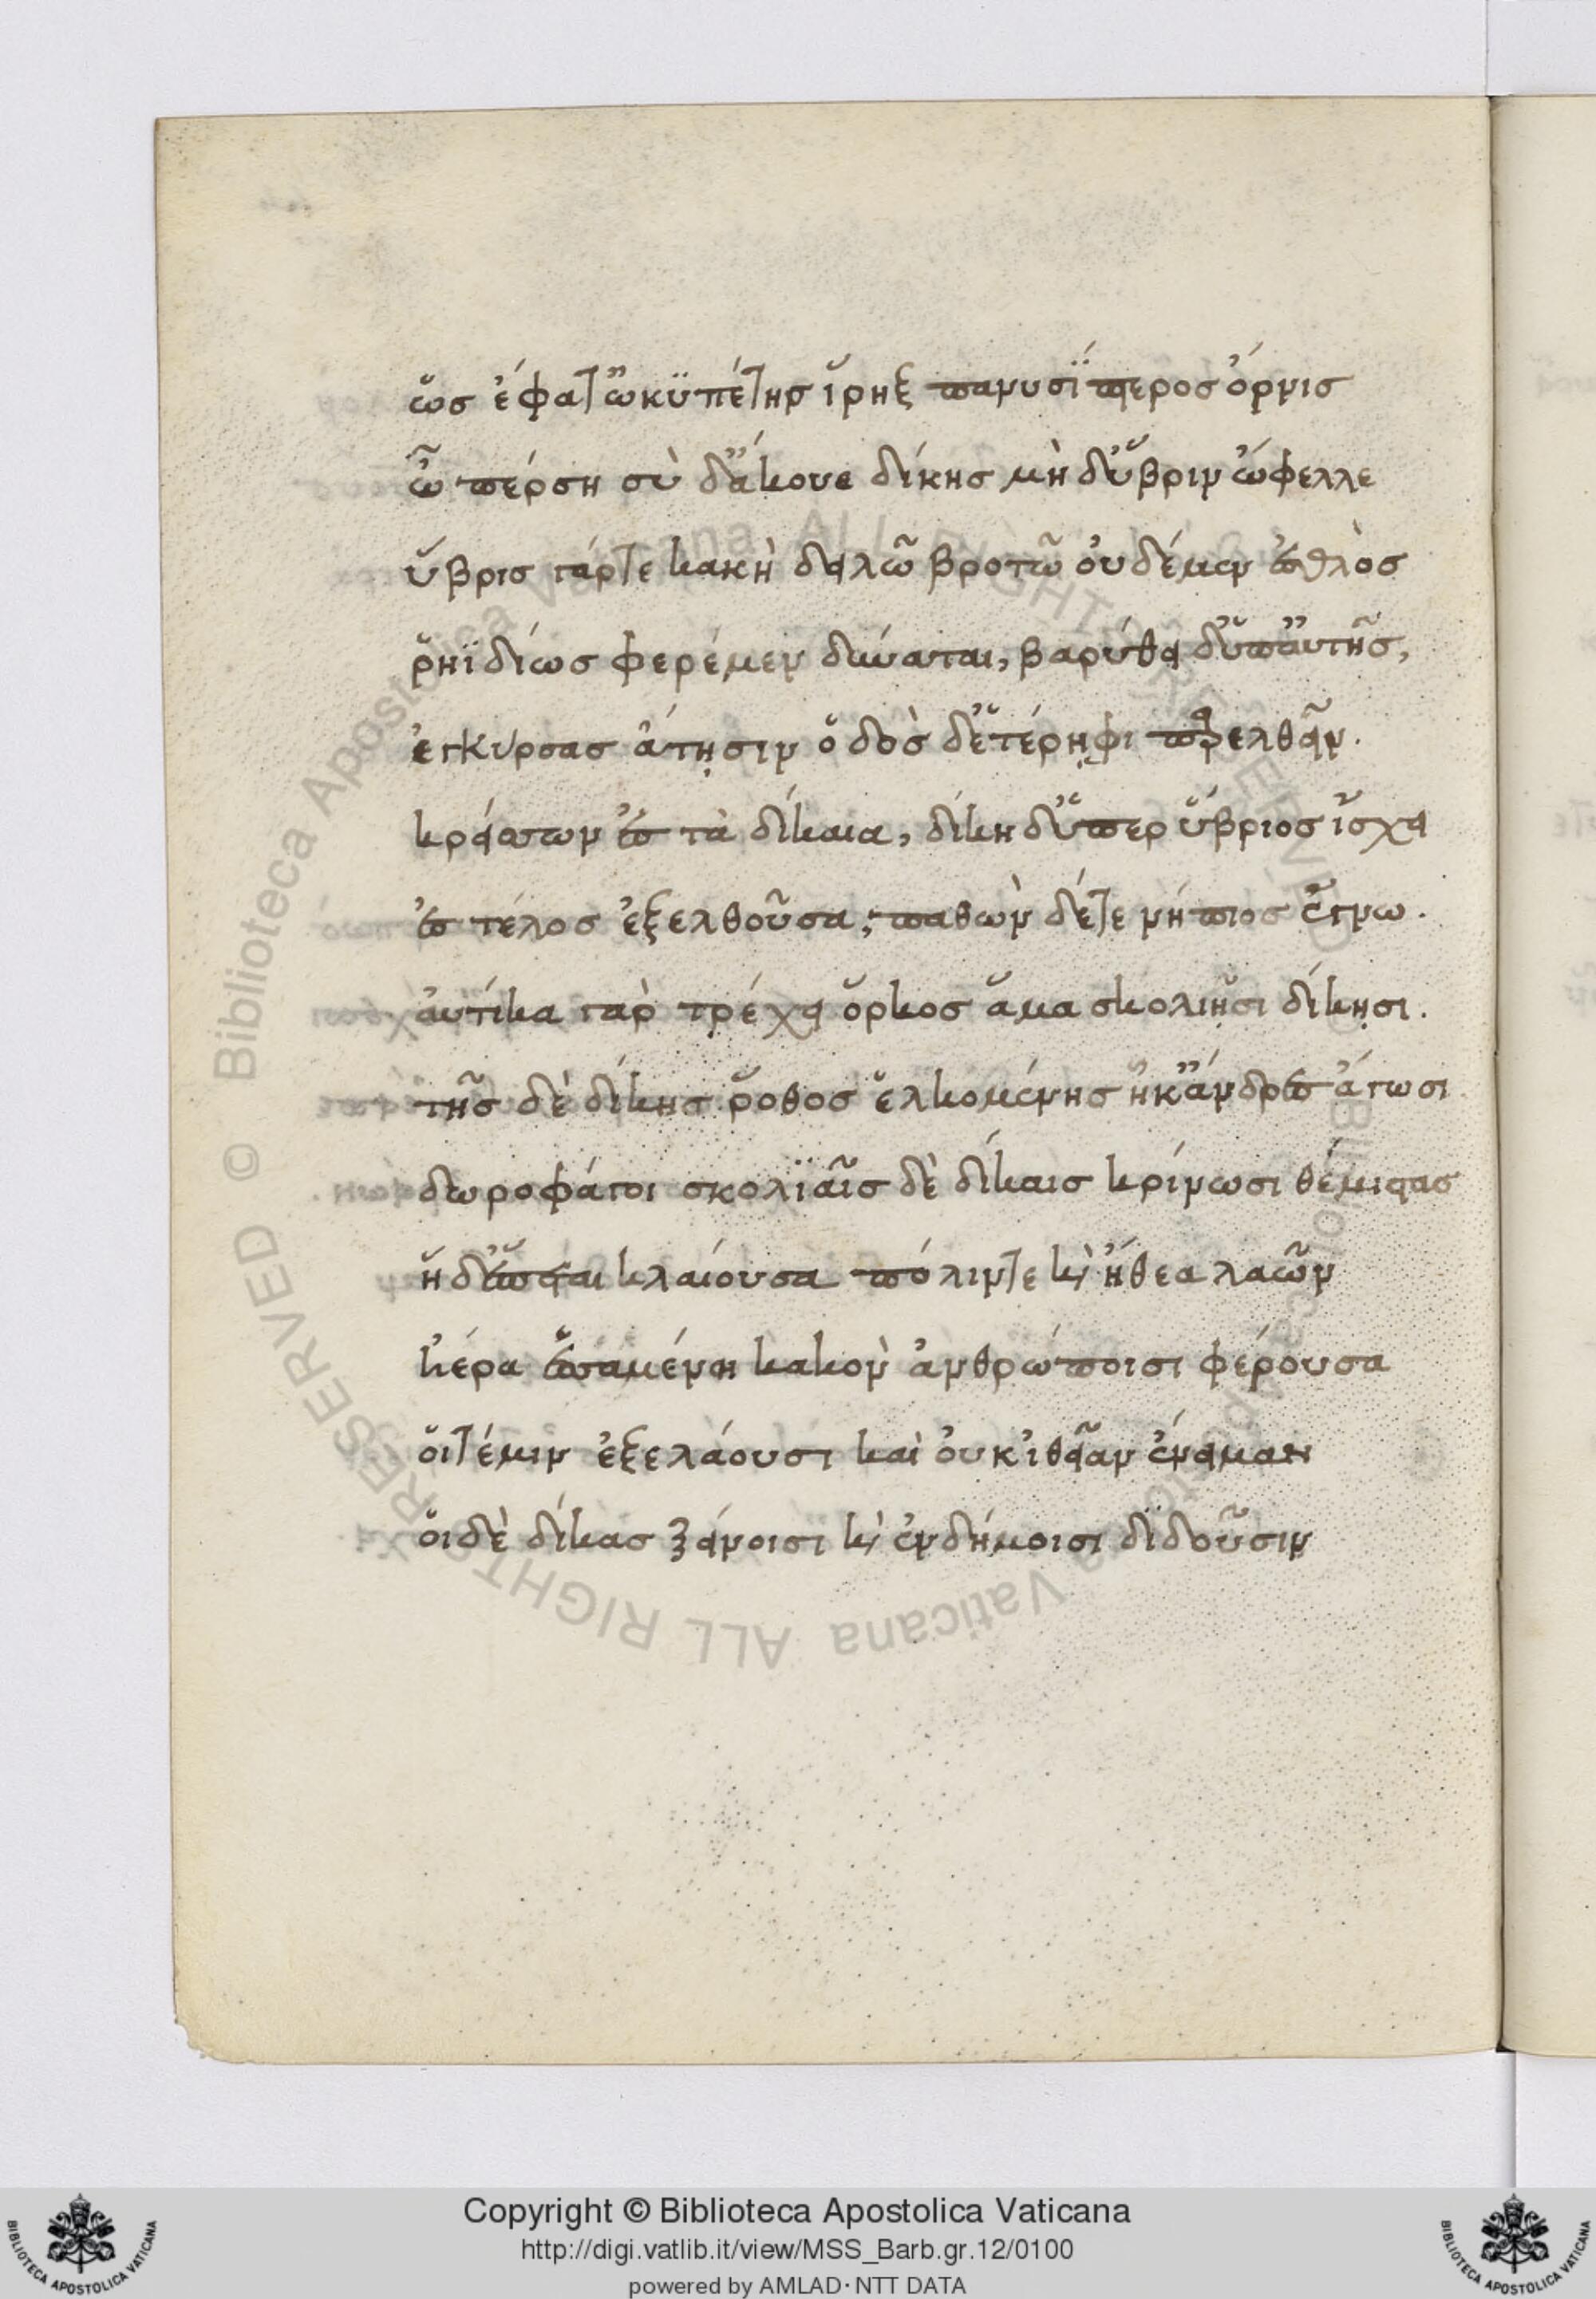 ὥς ἔφατ ὠκϋπέτης ἵρηξ τανυσΐπτερος ὄρνις
ὦ πέρση σὺ δ' ἄκουε δίκης μὴ δ' ὕβριν ὤφελλε
ὕβρις γάρ τε κακὴ δειλῶ βροτῶ οὐδέ μεν ἐσθλὸς
ῥηϊδίως φερέμεν δύναται, βαρύθει δ' ὑπ' αὐτῆς,
ἐγκυρσας ἄτῃσιν ὁδὸς δ' ἑτέρῃφι παρελθεῖν.
κρείσσων ἐς τὰ δίκαια, δίκη δ' ὑπερ ὕβριος ἴσχει
ἐς τέλος ἐξελθοῦσα, παθὼν δέ τε νήπιος ἔγνω.
αὐτίκα γαρ τρέχει ὅρκος ἅμα σκολιῇσι δίκῃσι.
τῆς δὲ δίκης ῥόθος ἑλκομένης ἧκ' ἄνδρες ἄγωσι
δωροφάγοι σκολϊαῖς δὲ δίκαις κρίνωσι θέμιστας
ἡ δ' ἕπεται κλαίουσα πόλιν τε καὶ ἤθεα λαῶν
ἠέρα ἑσσαμένη κακον ἀνθρώποισι φέρουσα
οἵ τέ μιν ἐξελάουσι καὶ οὐκ ἰθεῖαν ἔνειμαν
οἱ δὲ δίκας ξείνοισι καὶ ἐνδήμοισι δϊδοῦσιν
Copyright © Biblioteca Apostolica Vaticana
http://digi.vatlib.it/view/MSS_Barb.gr.12/0100
powered by AMLAD·NTT DATA